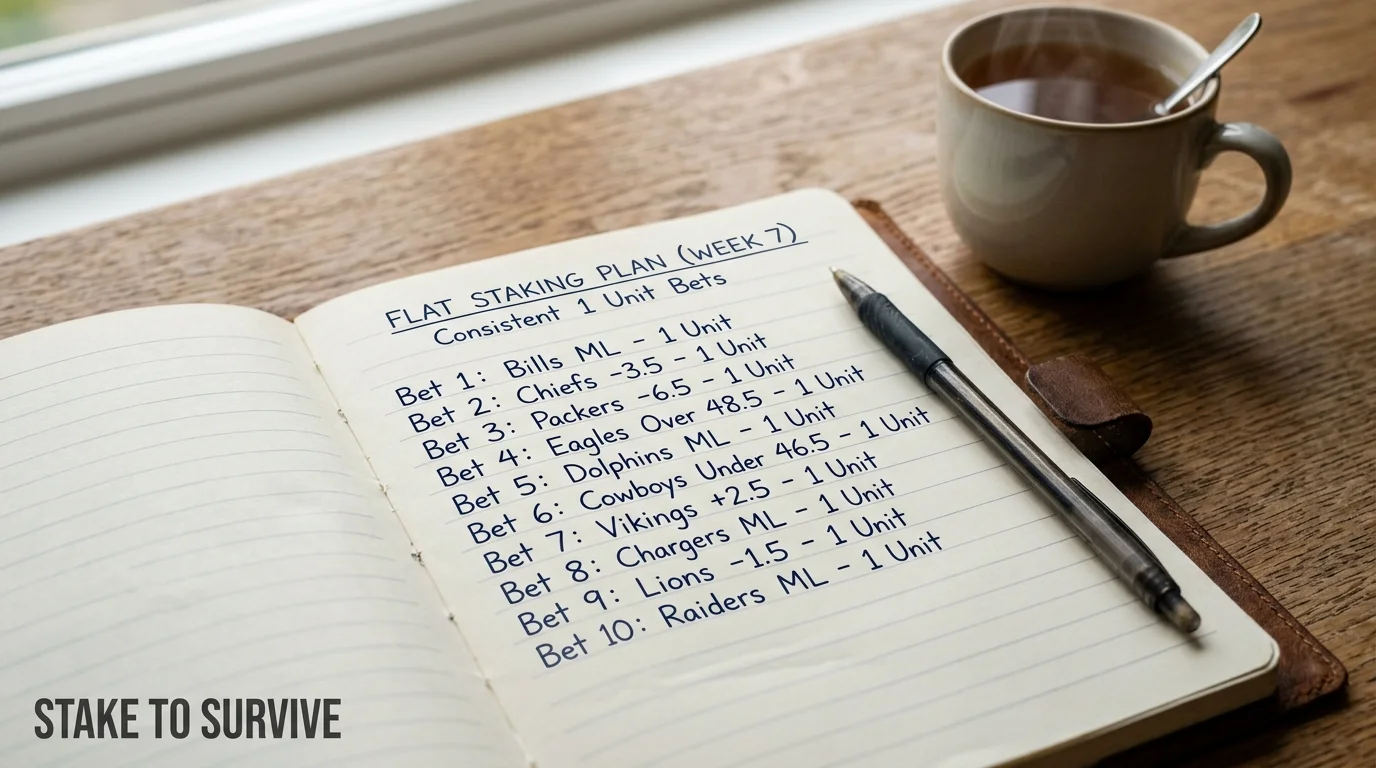 FLAT STAKING PLAN (WEEK 7)
Consistent 1 Unit Bets
Bet 1: Bills ML - 1 Unit
Bet 2: Chiefs -3.5 - 1 Unit
Bet 3: Packers -6.5 - 1 Unit
Bet 4: Eagles Over 48.5 - 1 Unit
Bet 5: Dolphins ML - 1 Unit
Bet 6: Cowboys Under 46.5 - 1 Unit
Bet 7: Vikings +2.5 - 1 Unit
Bet 8: Chargers ML - 1 Unit
Bet 9: Lions -1.5 - 1 Unit
Bet 10: Raiders ML - 1 Unit
STAKE TO SURVIVE